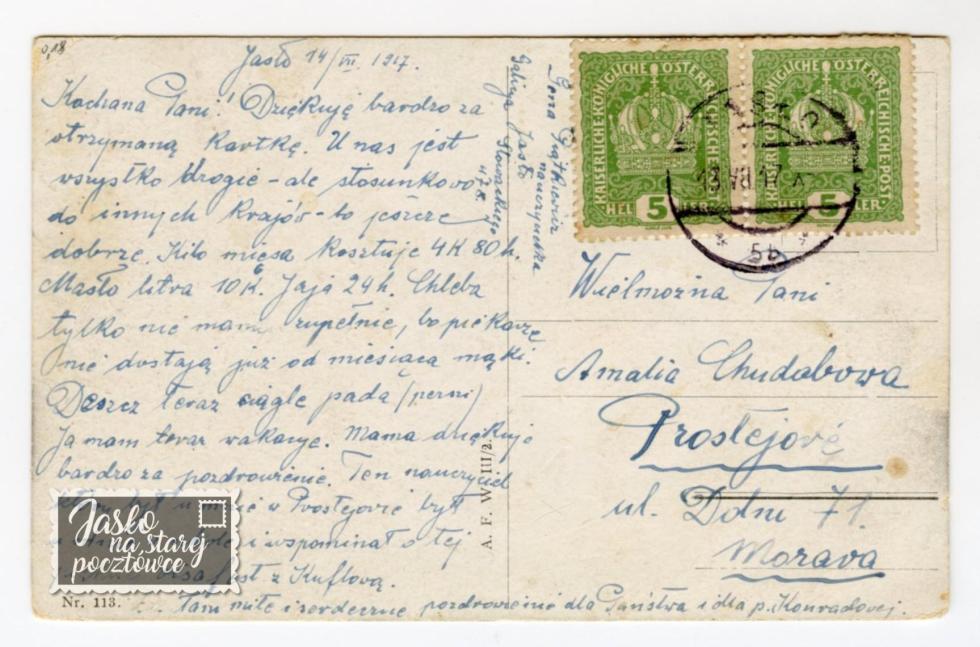 0,18
Jasło 14/VII. 1917.
Kochana Pani! Dziękuję bardzo za
otrzymaną kartkę. U nas jest
wszystko drogie - ale stosunkowo
do innych krajów - to jeszcze
dobrze. Kilo mięsa kosztuje 4K 80h.
Masło litra 10K. Jaja 24h. Chleba
tylko nie mamy zupełnie, bo piekarze
nie dostają już od miesiąca mąki.
Deszcz teraz ciągle pada
Ja mam teraz wakacye. Mama dziękuje
bardzo za pozdrowienie. Ten nauczyciel
w Prostejovie był
i wspominał o tej
jest z
Pani miłe i serdeczne pozdrowienie dla Państwa i dla p. Konradovej.
nauczycielka
Jasło
Słowackiego
KAISERLICHE KÖNIGLICHE ÖSTERREICHISCHE POST
HELLER 5 HELLER
KAISERLICHE KÖNIGLICHE ÖSTERREICHISCHE POST
HELLER 5 HELLER
13 VII 17
* 5b *
Wielmożna Pani
Amalia Chudobowa
Prostejově
ul. Dolni 71.
Morava
A. F. W. III/2.
Nr. 113.
Jasło
na starej
pocztówce